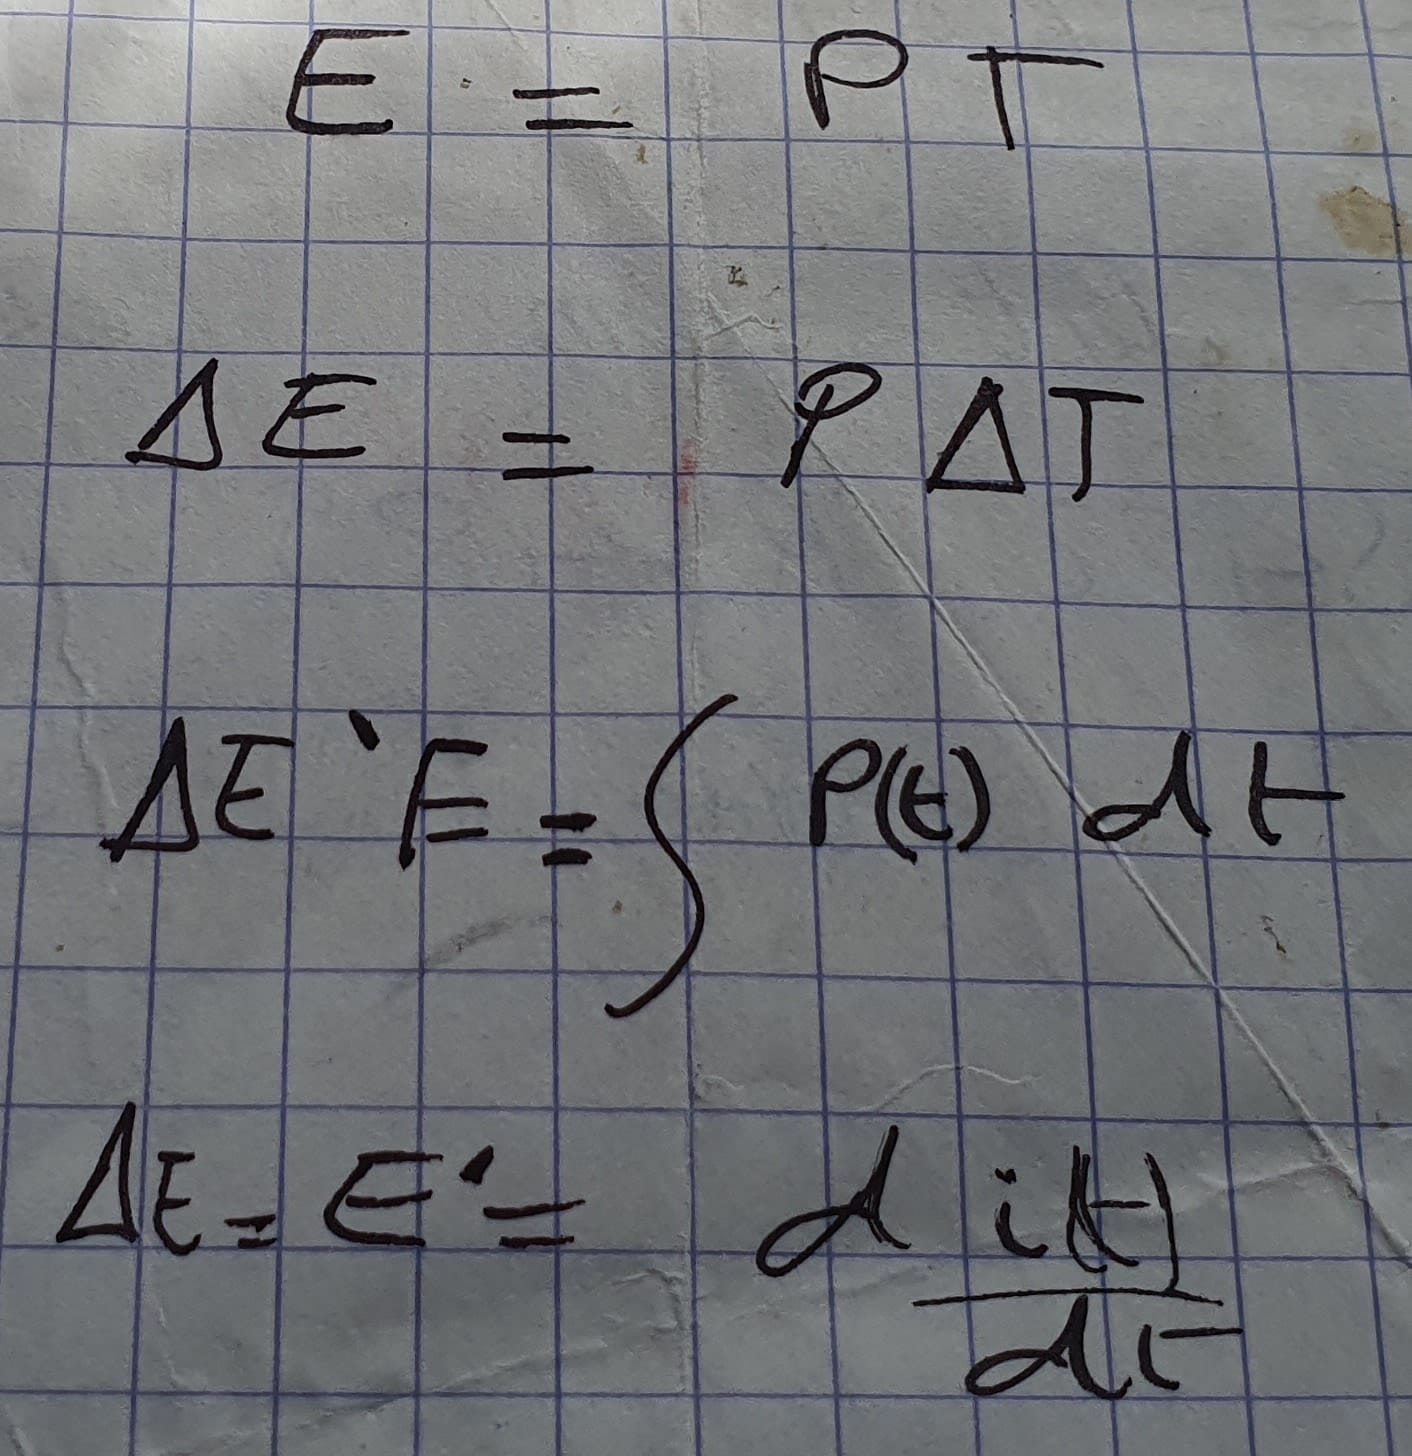 E = P T
ΔE = P ΔT
ΔE `E = ∫ P(t) dt
ΔE = E' = d i(t) / dt